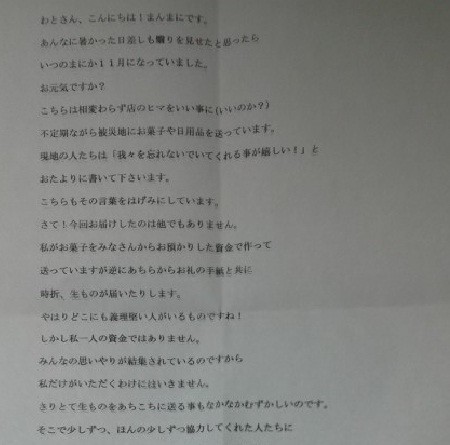 わとさん、こんにちは！まんまにです。
あんなに暑かった日差しも翳りを見せたと思ったら
いつのまにか１１月になっていました。
お元気ですか？
こちらは相変わらず店のヒマをいい事に(いいのか？)
不定期ながら被災地にお菓子や日用品を送っています。
現地の人たちは「我々を忘れないでいてくれる事が嬉しい！」と
おたよりに書いて下さいます。
こちらもその言葉をはげみにしています。
さて！今回お届けしたのは他でもありません。
私がお菓子をみなさんからお預かりした資金で作って
送っていますが逆にあちらからお礼の手紙と共に
時折、生ものが届いたりします。
やはりどこにも義理堅い人がいるものですね！
しかし私一人の資金ではありません。
みんなの思いやりが結集されているのですから
私だけがいただくわけにはいきません。
さりとて生ものをあちこちに送る事もなかなかむずかしいのです。
そこで少しずつ、ほんの少しずつ協力してくれた人たちに